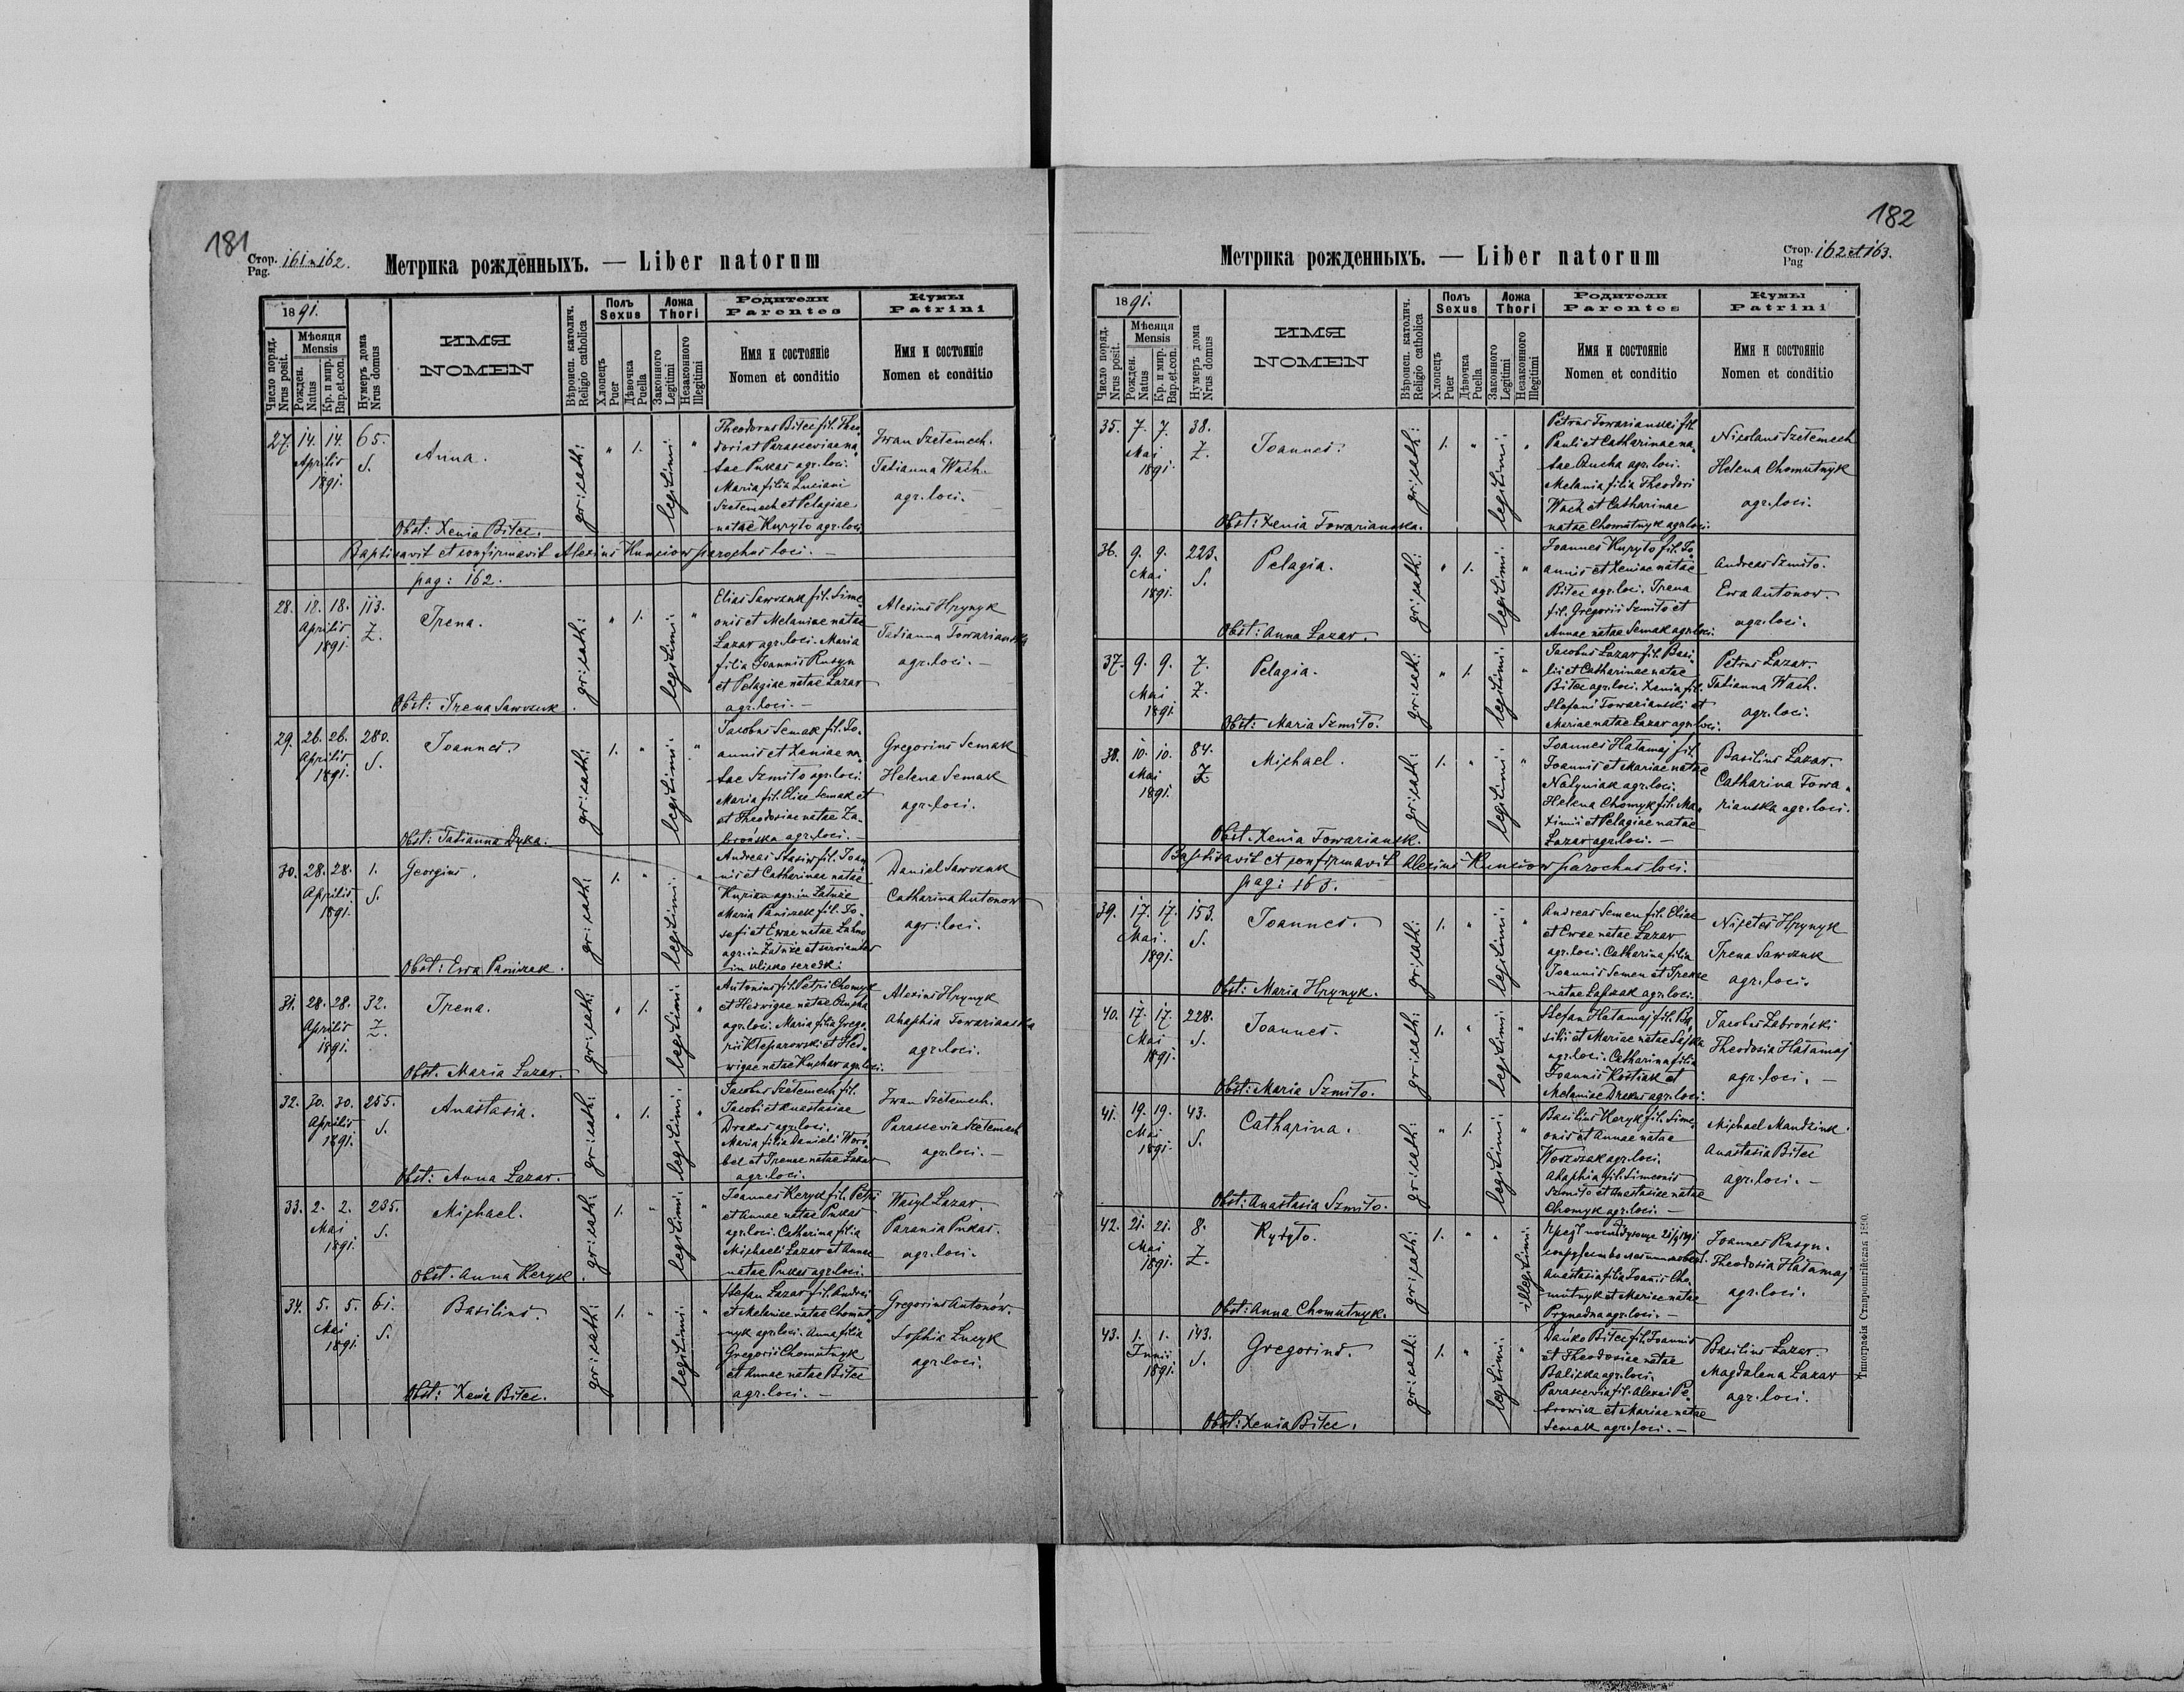 181
Стор. Pag. 161 и 162.
Метрика рожденныхъ. — Liber natorum
1891.
Число поряд. Nrus posit.
Мѣсяця Mensis
Рожден. Natus
Кр. и мир. Bap. et con.
Нумеръ дома Nrus domus
ИМЯ
NOMEN
Вѣроисп. католич. Religio catholica
Полъ Sexus
Хлопецъ Puer
Дѣвочка Puella
Ложа Thori
Законного Legitimi
Незаконного Illegitimi
Родители
Parentes
Имя и состояніе
Nomen et conditio
Кумы
Patrini
Имя и состояніе
Nomen et conditio
27. 14. 14. Aprilis 1891. 65. S.
Anna.
gr: cath: " 1. legitimi: "
Theodorus Bilec fil. Theo
dori et Parasceviae na
tae Pukas agr. loci.
Maria filia Luciani
Szetemech et Pelagiae
natae Kuryło agr. loci
Iwan Szetemech.
Tatianna Wach.
agr. loci. —
Obst: Xenia Bilec.
Baptisavit et confirmavit Alexius Kunciow parochus loci. —
pag: 162.
28. 18. 18. Aprilis 1891. 113. Z.
Irena.
gr: cath: " 1. legitimi: "
Elias Sawczuk fil. Sime
onis et Melaniae natae
Lazar agr. loci. Maria
filia Joannis Rusyn
et Pelagiae natae Lazar
agr. loci. —
Alexius Hrynyk
Tatianna Towarianska
agr. loci. —
Obst: Irena Sawczuk.
29. 26. 26. Aprilis 1891. 280. S.
Joannes.
gr: cath: 1. " legitimi: "
Jacobus Semak fil. Jo
annis et Xeniae na
tae Szmiło agr. loci.
Maria fil. Eliae Semak et
et Theodosiae natae Za
brońska agr. loci. —
Gregorius Semak
Helena Semak
agr. loci.
Obst: Tatianna Dyka.
30. 28. 28. Aprilis 1891. 1. S.
Georgius.
gr: cath: 1. " legitimi: "
Andreas Stasiw fil. Joan
nis et Catharinae natae
maria Paniszek fil. Jo
sefi et Ewae natae
Daniel Sawczuk
Catharina Antonow
agr: loci.
Obst: Ewa Paniszak.
31. 28. 28. Aprilis 1891. 32. Z.
Irena.
gr: cath: " 1. legitimi: "
Antonius fil. Petri Chomyk
et Hedwigae natae
agr. loci. Maria filia Grego
rii Kteparowski et Hed
wigae natae Kuchar agr. loci.
Alexius Hrynyk
Ahaphia Towarianska
agr. loci.
Obst. Maria Lazar.
32. 30. 30. Aprilis 1891. 255. S.
Anastasia.
gr: cath: " 1. legitimi: "
Jacobus Szetemech fil.
Jacobi et Anastasiae
Drakus agr. loci.
Maria filia Danieli Woro
bel et Irenae natae Lazar
agr. loci.
Iwan Szetemech.
Parascevia Szetemech
agr. loci. —
Obst: Anna Lazar.
33. 2. 2. Mai 1891. 235. S.
Michael.
gr: cath: 1. " legitimi: "
Joannes Keryk fil. Petri
et Annae natae Pukas
agr. loci. Catharina filia
Michaeli Lazar et Annae
natae Pukas agr. loci.
Wasyl Lazar.
Parania Pukas.
agr. loci.
Obst. Anna Keryk.
34. 5. 5. Mai 1891. 61. S.
Basilius.
gr: cath: 1. " legitimi: "
Stefan Lazar fil. Andrei
et Melaniae natae Chomut
nyk agr. loci. Anna filia
Gregorii Chomutnyk
et Annae natae Bilec
agr. loci. —
Gregorius Antonów.
Sophia Lucyk
agr. loci.
Obst: Xenia Bilec.
182
Стор. Pag 162 et 163.
Метрика рожденныхъ. — Liber natorum
1891.
Число поряд. Nrus posit.
Мѣсяця Mensis
Рожден. Natus
Кр. и мир. Bap. et con.
Нумеръ дома Nrus domus
ИМЯ
NOMEN
Вѣроисп. католич. Religio catholica
Полъ Sexus
Хлопецъ Puer
Дѣвочка Puella
Ложа Thori
Законного Legitimi
Незаконного Illegitimi
Родители
Parentes
Имя и состояніе
Nomen et conditio
Кумы
Patrini
Имя и состояніе
Nomen et conditio
35. 7. 7. Mai 1891. 38. Z.
Joannes.
gr: cath: 1. " legitimi: "
Petrus Towarianski fil
Pauli et Catharinae na
tae agr. loci.
Melania filia Theodori
Wach et Catharinae
natae Chomutnyk agr. loci.
Nicolaus Szetemech
Helena Chomutnyk
agr. loci.
Obst: Xenia Towarianska.
36. 9. 9. Mai 1891. 223. S.
Pelagia.
gr: cath: " 1. legitimi: "
Joannes Kuryło fil. Jo
annis et Xeniae natae
Bilec agr. loci. Irena
fil. Gregorii Szmiło et
Annae natae Semak agr. loci.
Andreas Szmiło.
Ewa Antonow.
agr. loci.
Obst: Anna Lazar.
37. 9. 9. Mai 1891 7. Z.
Pelagia.
gr: cath: " 1. legitimi: "
Jacobus Lazar fil. Basi
lii et Catharinae natae
Bilec agr. loci. Xenia fil.
Stefani Towarianski et
Mariae natae Lazar agr. loci.
Petrus Lazar.
Tatianna Wach.
agr. loci.
Obst: Maria Szmiło.
38. 10. 10. Mai 1891. 84. Z
Michael.
gr: cath: 1. " legitimi: "
Joannes Hałamaj fil.
Joannis et Mariae natae
Nałyniak agr. loci.
Helena Chomyk fil. Ma
ximii et Pelagiae natae
Lazar agr. loci. —
Basilius Lazar.
Catharina Towa
rianska agr. loci.
Obst. Xenia Towariansk.
Baptisavit et confirmavit Alexius Kunciow parochus loci.
pag: 163.
39. 17. 17. Mai. 1891. 153. S.
Joannes.
gr: cath: 1. " legitimi: "
Andreas Semen fil. Eliae
et Ewae natae Lazar
agr. loci. Catharina filia
Joannis Semen et Irenae
natae agr. loci.
Nicetes Hrynyk
Irena Sawczuk
agr. loci.
Obst: Maria Hrynyk.
40. 17. 17. Mai 1891. 228. S.
Joannes.
gr: cath: 1. " legitimi: "
Stefan Hałamaj fil. Ba
silii et Mariae natae
agr. loci. Catharina filia
Joannis Kostiak et
Melaniae Drakus agr. loci.
Jacobus Zabroński
Theodosia Hałamaj
agr. loci. —
Obst: Maria Szmiło.
41. 19. 19. Mai 1891. 43. S.
Catharina.
gr: cath: " 1. legitimi: "
Basilius Keryk fil. Sime
onis et Annae natae
agr. loci.
Ahaphia fil. Simeonis
Szmiło et Anastasiae natae
Chomyk agr. loci. —
Michael Mandziuk
Anastasia Bilec
agr. loci. —
Obst: Anastasia Szmiło.
42. 21. 21. Mai 1891. 8. Z.
Kyryło.
gr: cath: 1. " " illegitimi:
Anastasia filia Joannis Cho
mutnyk et Mariae natae
Prynadna agr. loci. —
Joannes Rusyn.
Theodosia Hałamaj
agr. loci.
Obst: Anna Chomutnyk.
43. 1. 1. Junii 1891. 143. S.
Gregorius.
gr: cath: 1. " legitimi: "
Dańko Bilec fil. Joannis
et Theodosiae natae
Baliczka agr. loci.
Parascevia fil. Alexei Pe
trowicz et Mariae natae
Semak agr. loci. —
Basilius Lazar.
Magdalena Lazar
agr. loci.
Obst: Xenia Bilec.
Типографія Ставропигійская 1890.